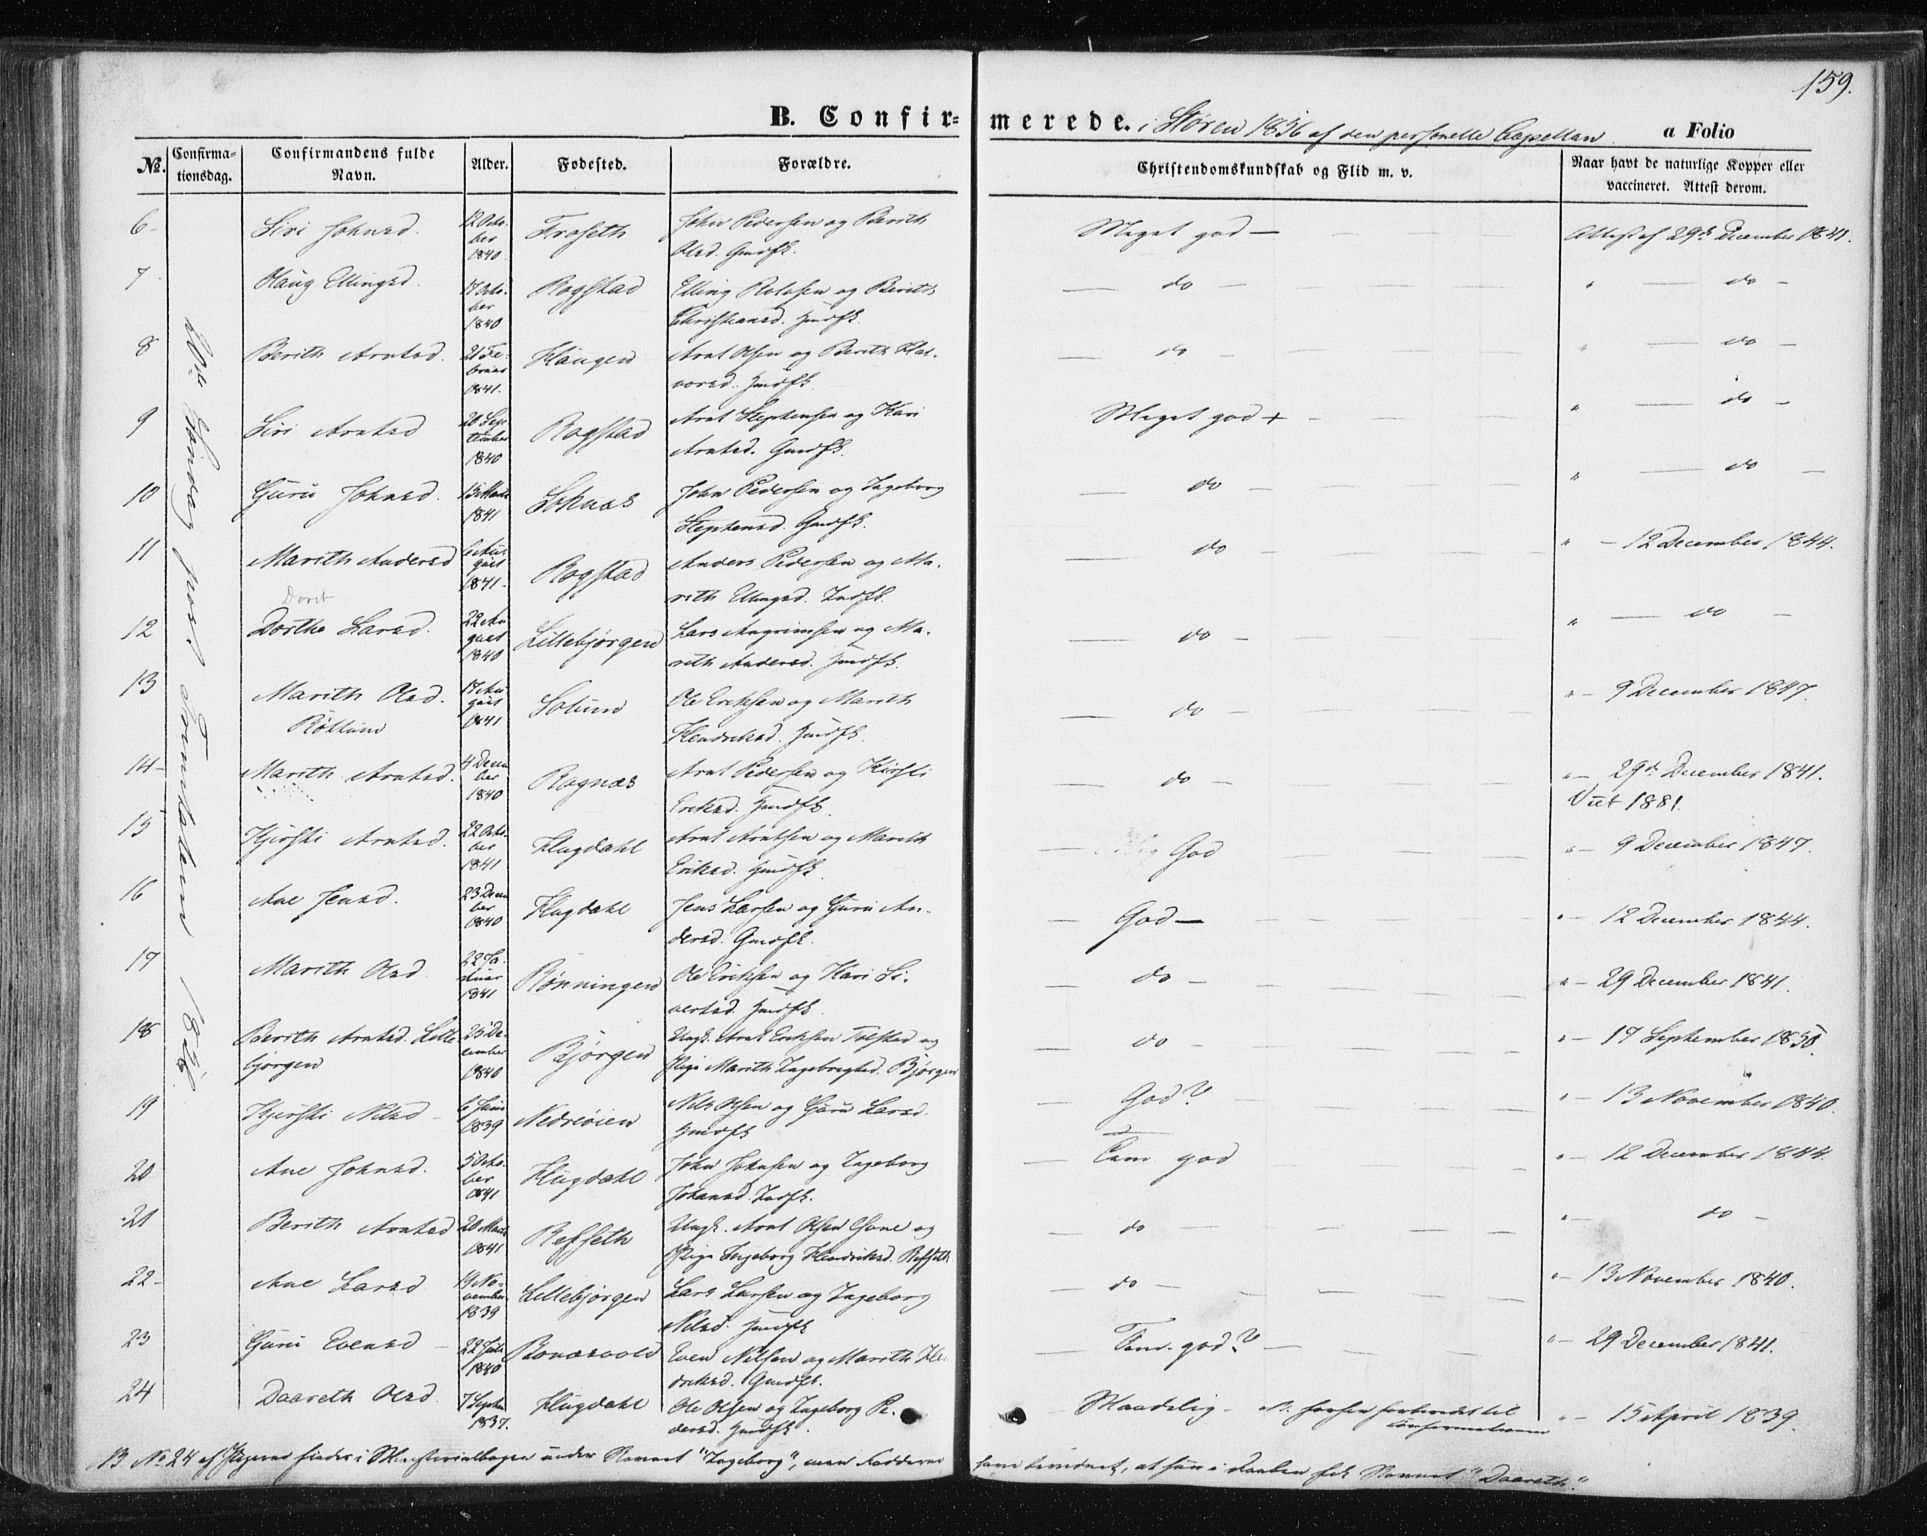 159.
B. Confirmerede. i Støren 1856 af den personelle Capellan a Folio
No. Confirmationsdag. Confirmandens fulde Navn. Alder. Fødested. Forældre. Christendomskundskab og Flid m. v. Naar havt de naturlige Kopper eller vaccineret. Attest derom.
Søndag post Trinitatem 1856
6 Siri Johnsd. 12 October 1840 Froseth John Pedersen og Berith Olsd. Gmdfk. Meget god — Attest af 29de December 1841.
7 Haug Ellingsd. 17 October 1840 Rogstad Elling Rolvsen og Berith Christiansd. Hmdfk. do — " — do —
8 Berith Arntsd. 21 Februar 1841. Haugen Arnt Olsen og Berith Halvorsd. Hmdfk. do — " — do
9 Siri Arntsd 20 September 1840 Rogstad Arnt Stephensen og Kari Arntsd. Gmdfk. Meget god + " — do —
10 Guru Johnsd. 13 Marts 1841 Soknæs John Pedersen og Ingeborg Stephensd. Gmdfk. do — " — do —
11 Marith Andersd 6 August 1841. Rogstad Anders Pedersen og Marith Ellingsd. Indfk. do — " — 12 December 1844.
Doret
12 Dorthe Larsd. 22 August 1840 Lillebjørgen Lars Angrimsen og Marith Andersd. Hmdfk. do — " — do —
13 Marith Olsd. Røttum 17 August 1841 Solum Ole Eriksen og Marith Hendriksd. Hmdfk. do — " — 9 December 1847.
14 Marith Arntsd. 4 December 1840 Rognæs Arnt Pedersen og Kirsti Eriksd. Hmdfk. do — " — 29de December 1841. Vut 1881.
15 Kjersti Arntsd. 22 October 1841 Hugdahl Arnt Arntsen og Marith Eriksd. Hmdfk. God " — 9 December 1847.
16 Ane Jensd. 23 December 1840 Hugdahl Jens Larsen og Guru Andersd. Gmdfk. God — " — 12 December 1844.
17 Marith Olsd. 22 Januar 1841 Rønningen Ole Eriksen og Kari Sivertsd. Hmdfk. do — " — 29 December 1841.
18 Berith Arntsd. Lillebjørgen 25 December 1840 Bjørgen Ungk. Arnt Eriksen Folstad og Pige Marith Ingebrigtsd. Bjørgen do — " — 17 September 1850.
19 Kjersti Nilsd — 6 Juni 1839 Nedreøien Nils Olsen og Guru Larsd. Hmdfk God? " — 13 November 1840.
20 Ane Johnsd. 5 October 1841 Hugdahl John Johnsen og Ingeborg Johansd. Indfk. Tem. god " — 12 December 1844.
21 Berith Arntsd 20 Marts 1841 Refseth Ungk. Arnt Olsen og Pige Ingeborg Hendriksd. Refseth do — " — do —
22 Ane Larsd 19 November 1839 Lillebjørgen Lars Larsen og Ingeborg Nilsd. Hmdfk do — " — 13 November 1840.
23 Guru Evensd — 22 Juli 1840 Bonæsvold Even Nilsen og Marith Hendriksd. Gmdfk. Tem. god? — " — 29 December 1841.
24 Daareth Olsd 7 Septbr 1837. Hugdahl Ole Olsen og Ingeborg Pedersd. Hmdfk. Maadelig — forhen forberedet til Confirmationen " — 15 April 1839.
NB No 24 af Pigerne findes i Ministerialbogen under Navnet "Ingeborg", men Fadderne have bevidnet, at hun i Daaben fik Navnet "Daareth".